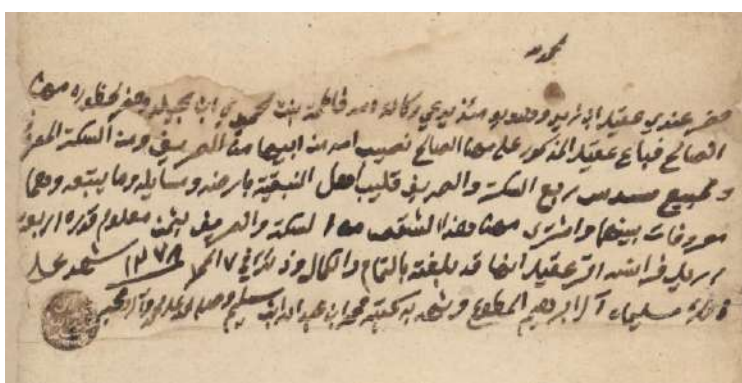 الحمد لله
حضر عندي عقيد ابن زيد وهو يومئذ يدعي وكالة امه فاطمة بنت حمود ابن وحضر لحضوره مهنا
الصالح فباع عقيد المذكور على مهنا الصالح نصيب امه من ابيها من الحريف ومن السكة المعروفة
وهو سدس ربع السكة والحريف قليب اهل النبقية بارضه ومسايله وما يتبعه وهما
معروفات بينهما واشترى مهنا هذا الشقص من السكة والحريف بثمن معلوم قدره اربعة
اريل فرانسه اقر عقيد انها قد بلغته بالتمام والكمال وذلك في ٧ ١٣٧٨ شهد على
ذلك سليمان آل ابراهيم المطوع وشهد به كتبه محمد ابن عبد الله ابن سليم وصلى الله على محمد وآله وصحبه